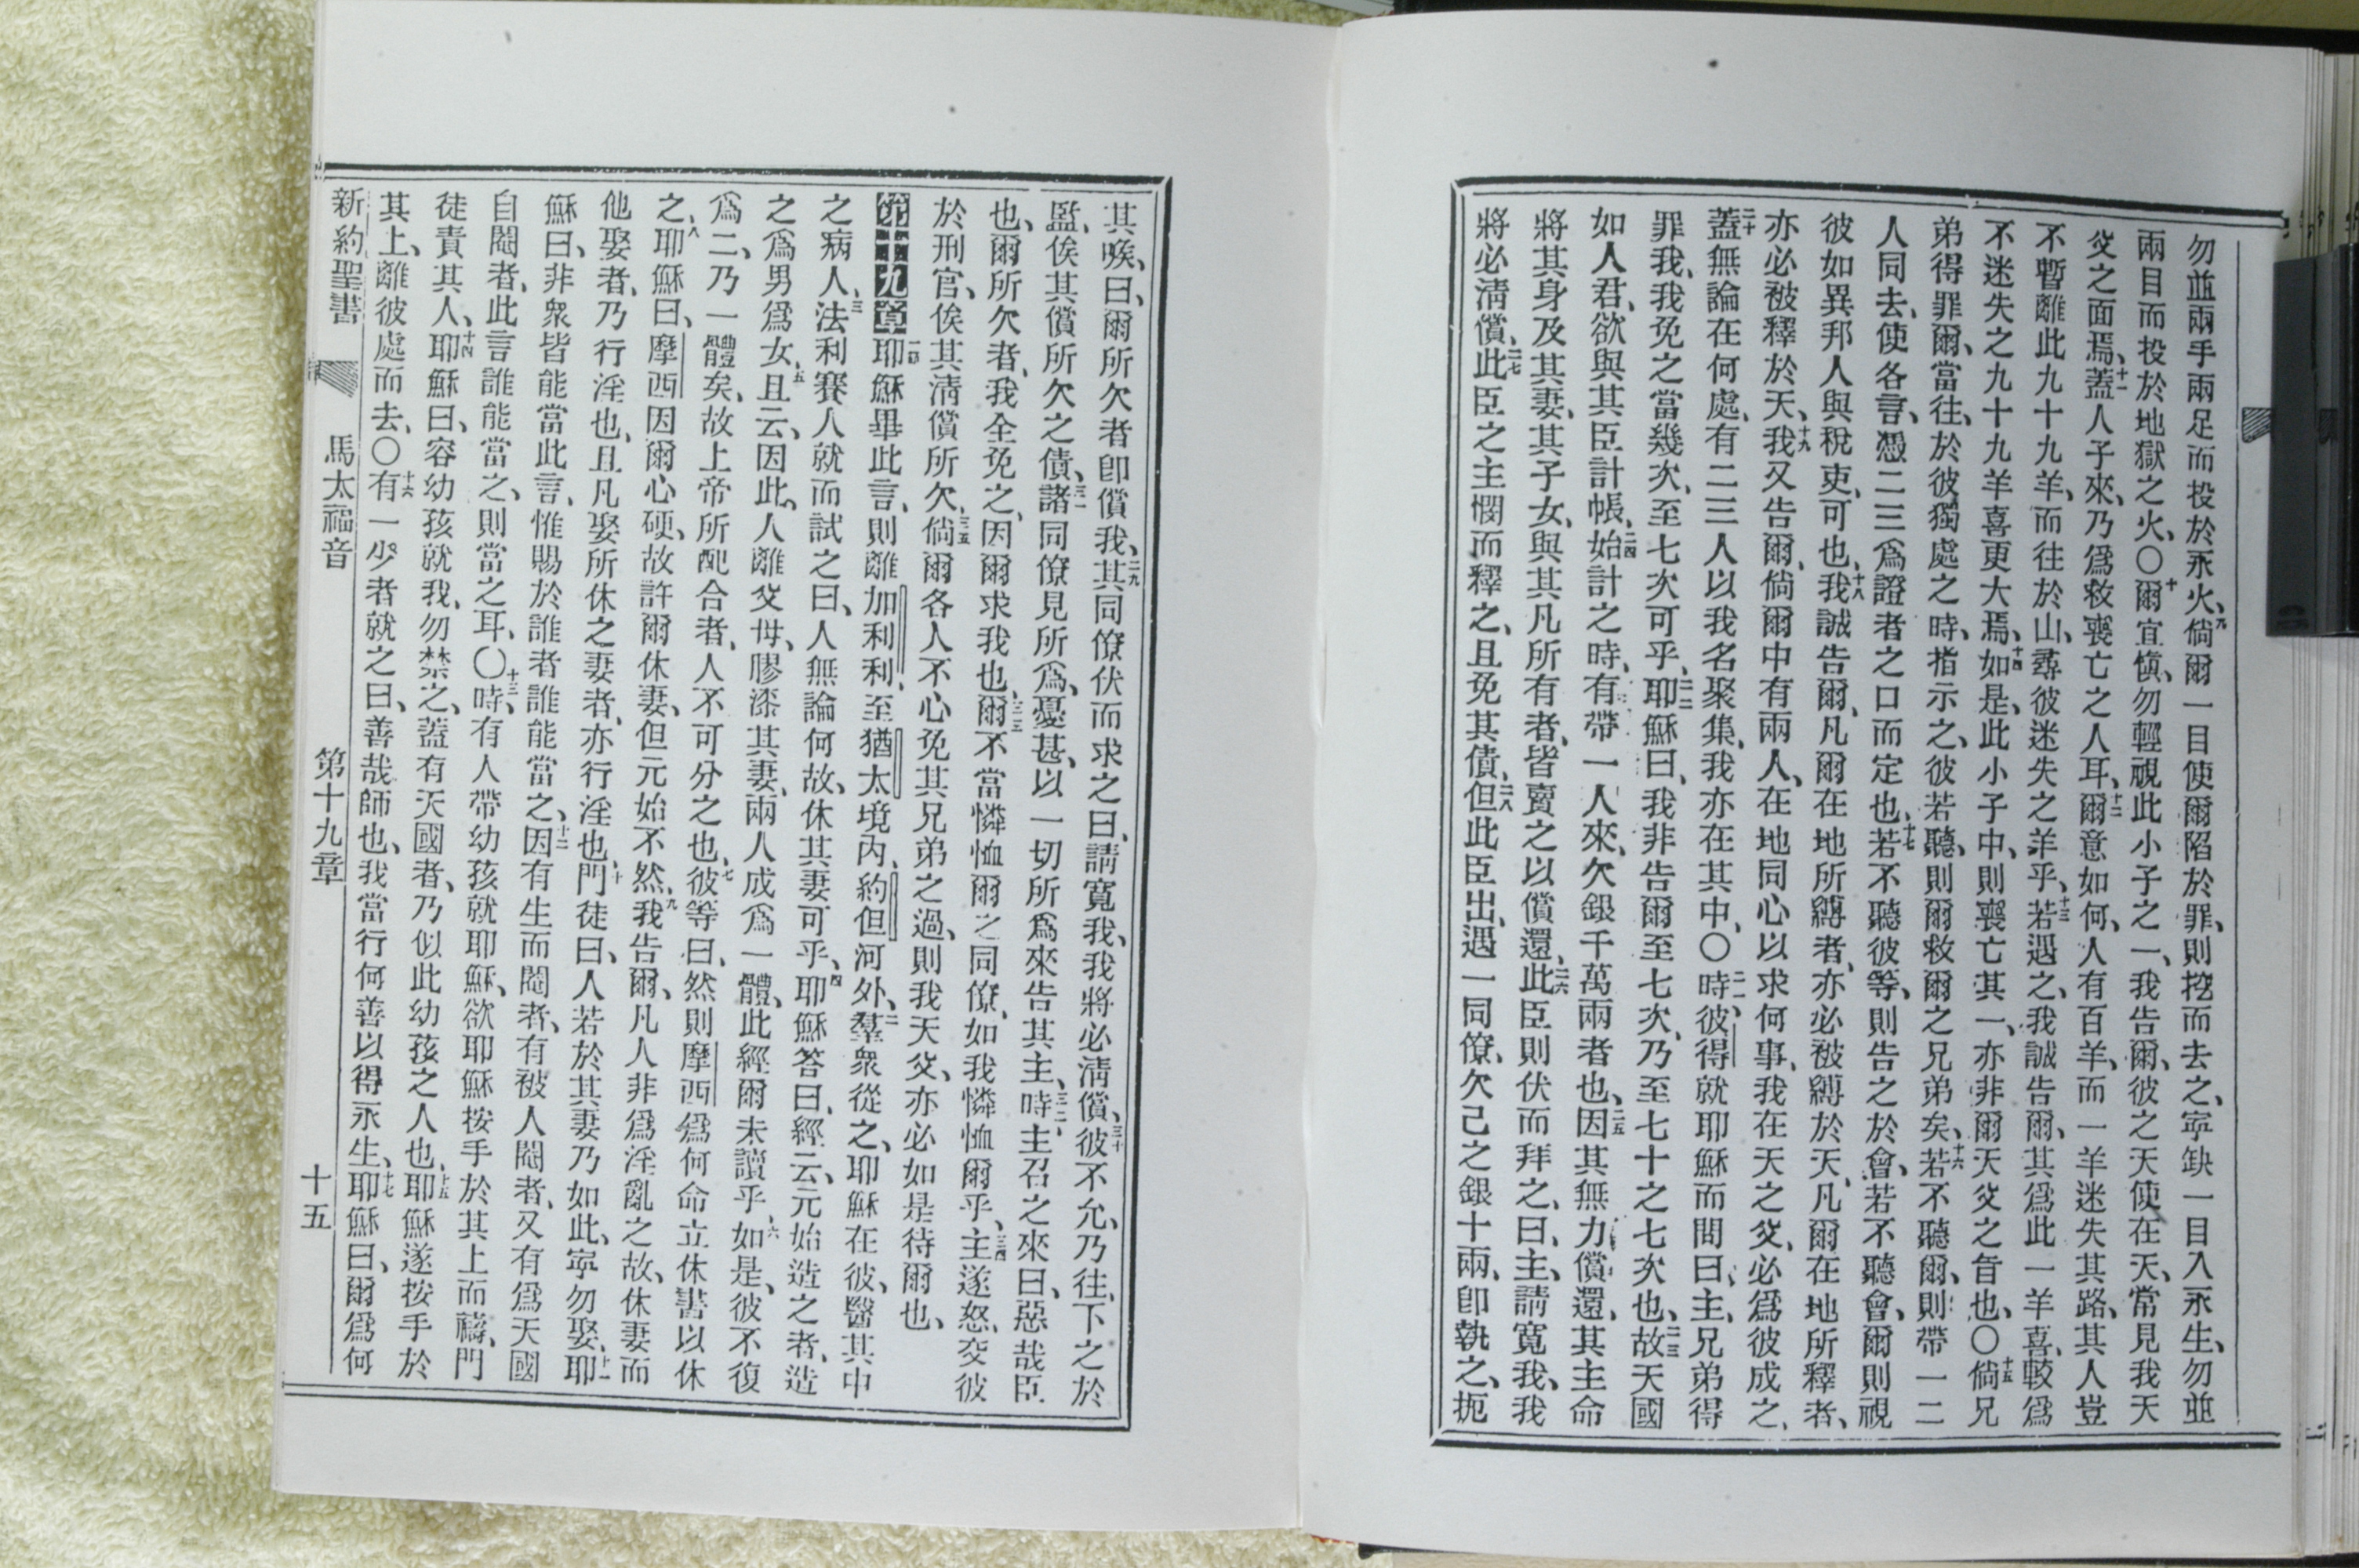 勿並兩手兩足而投於永火、九倘爾一目使爾陷於罪、則挖而去之、寧缺一目入永生、勿並
兩目而投於地獄之火、〇十爾宜愼、勿輕視此小子之一、我告爾、彼之天使在天、常見我天
父之面焉、十一蓋人子來、乃爲救喪亡之人耳、十二爾意如何、人有百羊、而一羊迷失其路、其人豈
不暫離此九十九羊、而往於山、尋彼迷失之羊乎、十三若遇之、我誠告爾、其爲此一羊喜、較爲
不迷失之九十九羊喜更大焉、十四如是、此小子中、則喪亡其一、亦非爾天父之旨也、〇十五倘兄
弟得罪爾、當往、於彼獨處之時、指示之、彼若聽、則爾救爾之兄弟矣、十六若不聽爾、則帶一二
人同去、使各言、憑二三爲證者之口而定也、十七若不聽彼等、則告之於會、若不聽會、爾則視
彼如異邦人與稅吏、可也、十八我誠告爾、凡爾在地所縛者、亦必被縛於天、凡爾在地所釋者、
亦必被釋於天、十九我又告爾、倘爾中有兩人、在地同心以求何事、我在天之父、必爲彼成之、
二十蓋無論在何處、有二三人以我名聚集、我亦在其中、〇二一時、彼得就耶穌而問曰、主、兄弟得
罪我、我免之當幾次、至七次可乎、二二耶穌曰、我非告爾至七次、乃至七十之七次也、二三故天國
如人君、欲與其臣計帳、二四始計之時、有帶一人來、欠銀千萬兩者也、二五因其無力償還、其主命
將其身及其妻、其子女、與其凡所有者、皆賣之以償還、二六此臣則伏而拜之、曰、主、請寬我、我
將必淸償、二七此臣之主憫而釋之、且免其債、二八但此臣出、遇一同僚、欠己之銀十兩、卽執之、扼
其喉、曰、爾所欠者卽償我、二九其同僚伏而求之曰、請寬我、我將必淸償、三十彼不允、乃往、下之於
監、俟其償所欠之債、三一諸同僚見所爲、憂甚、以一切所爲來告其主、三二時、主召之來曰、惡哉臣
也、爾所欠者、我全免之、因爾求我也、三三爾不當憐恤爾之同僚、如我憐恤爾乎、三四主遂怒、交彼
於刑官、俟其淸償所欠、三五倘爾各人不心免其兄弟之過、則我天父、亦必如是待爾也、
第十九章一節耶穌畢此言、則離加利利、至猶太境內、約但河外、二羣衆從之、耶穌在彼、醫其中
之病人、三法利賽人就而試之曰、人無論何故、休其妻可乎、四耶穌答曰、經云、元始造之者、造
之爲男爲女、五且云、因此、人離父母、膠漆其妻、兩人成爲一體、此經爾未讀乎、六如是、彼不復
爲二、乃一體矣、故上帝所配合者、人不可分之也、七彼等曰、然則摩西爲何命立休書以休
之、八耶穌曰、摩西因爾心硬、故許爾休妻、但元始不然、九我告爾、凡人非爲淫亂之故、休妻而
他娶者、乃行淫也、且凡娶所休之妻者、亦行淫也、十門徒曰、人若於其妻乃如此、寧勿娶、十一耶
穌曰、非衆皆能當此言、惟賜於誰者誰能當之、十二因有生而閹者、有被人閹者、又有爲天國
自閹者、此言誰能當之、則當之耳、〇十三時、有人帶幼孩就耶穌、欲耶穌按手於其上而禱、門
徒責其人、十四耶穌曰、容幼孩就我、勿禁之、蓋有天國者、乃似此幼孩之人也、十五耶穌遂按手於
其上、離彼處而去、〇十六有一少者就之曰、善哉師也、我當行何善以得永生、十七耶穌曰、爾爲何
新約聖書 馬太福音 第十九章 十五